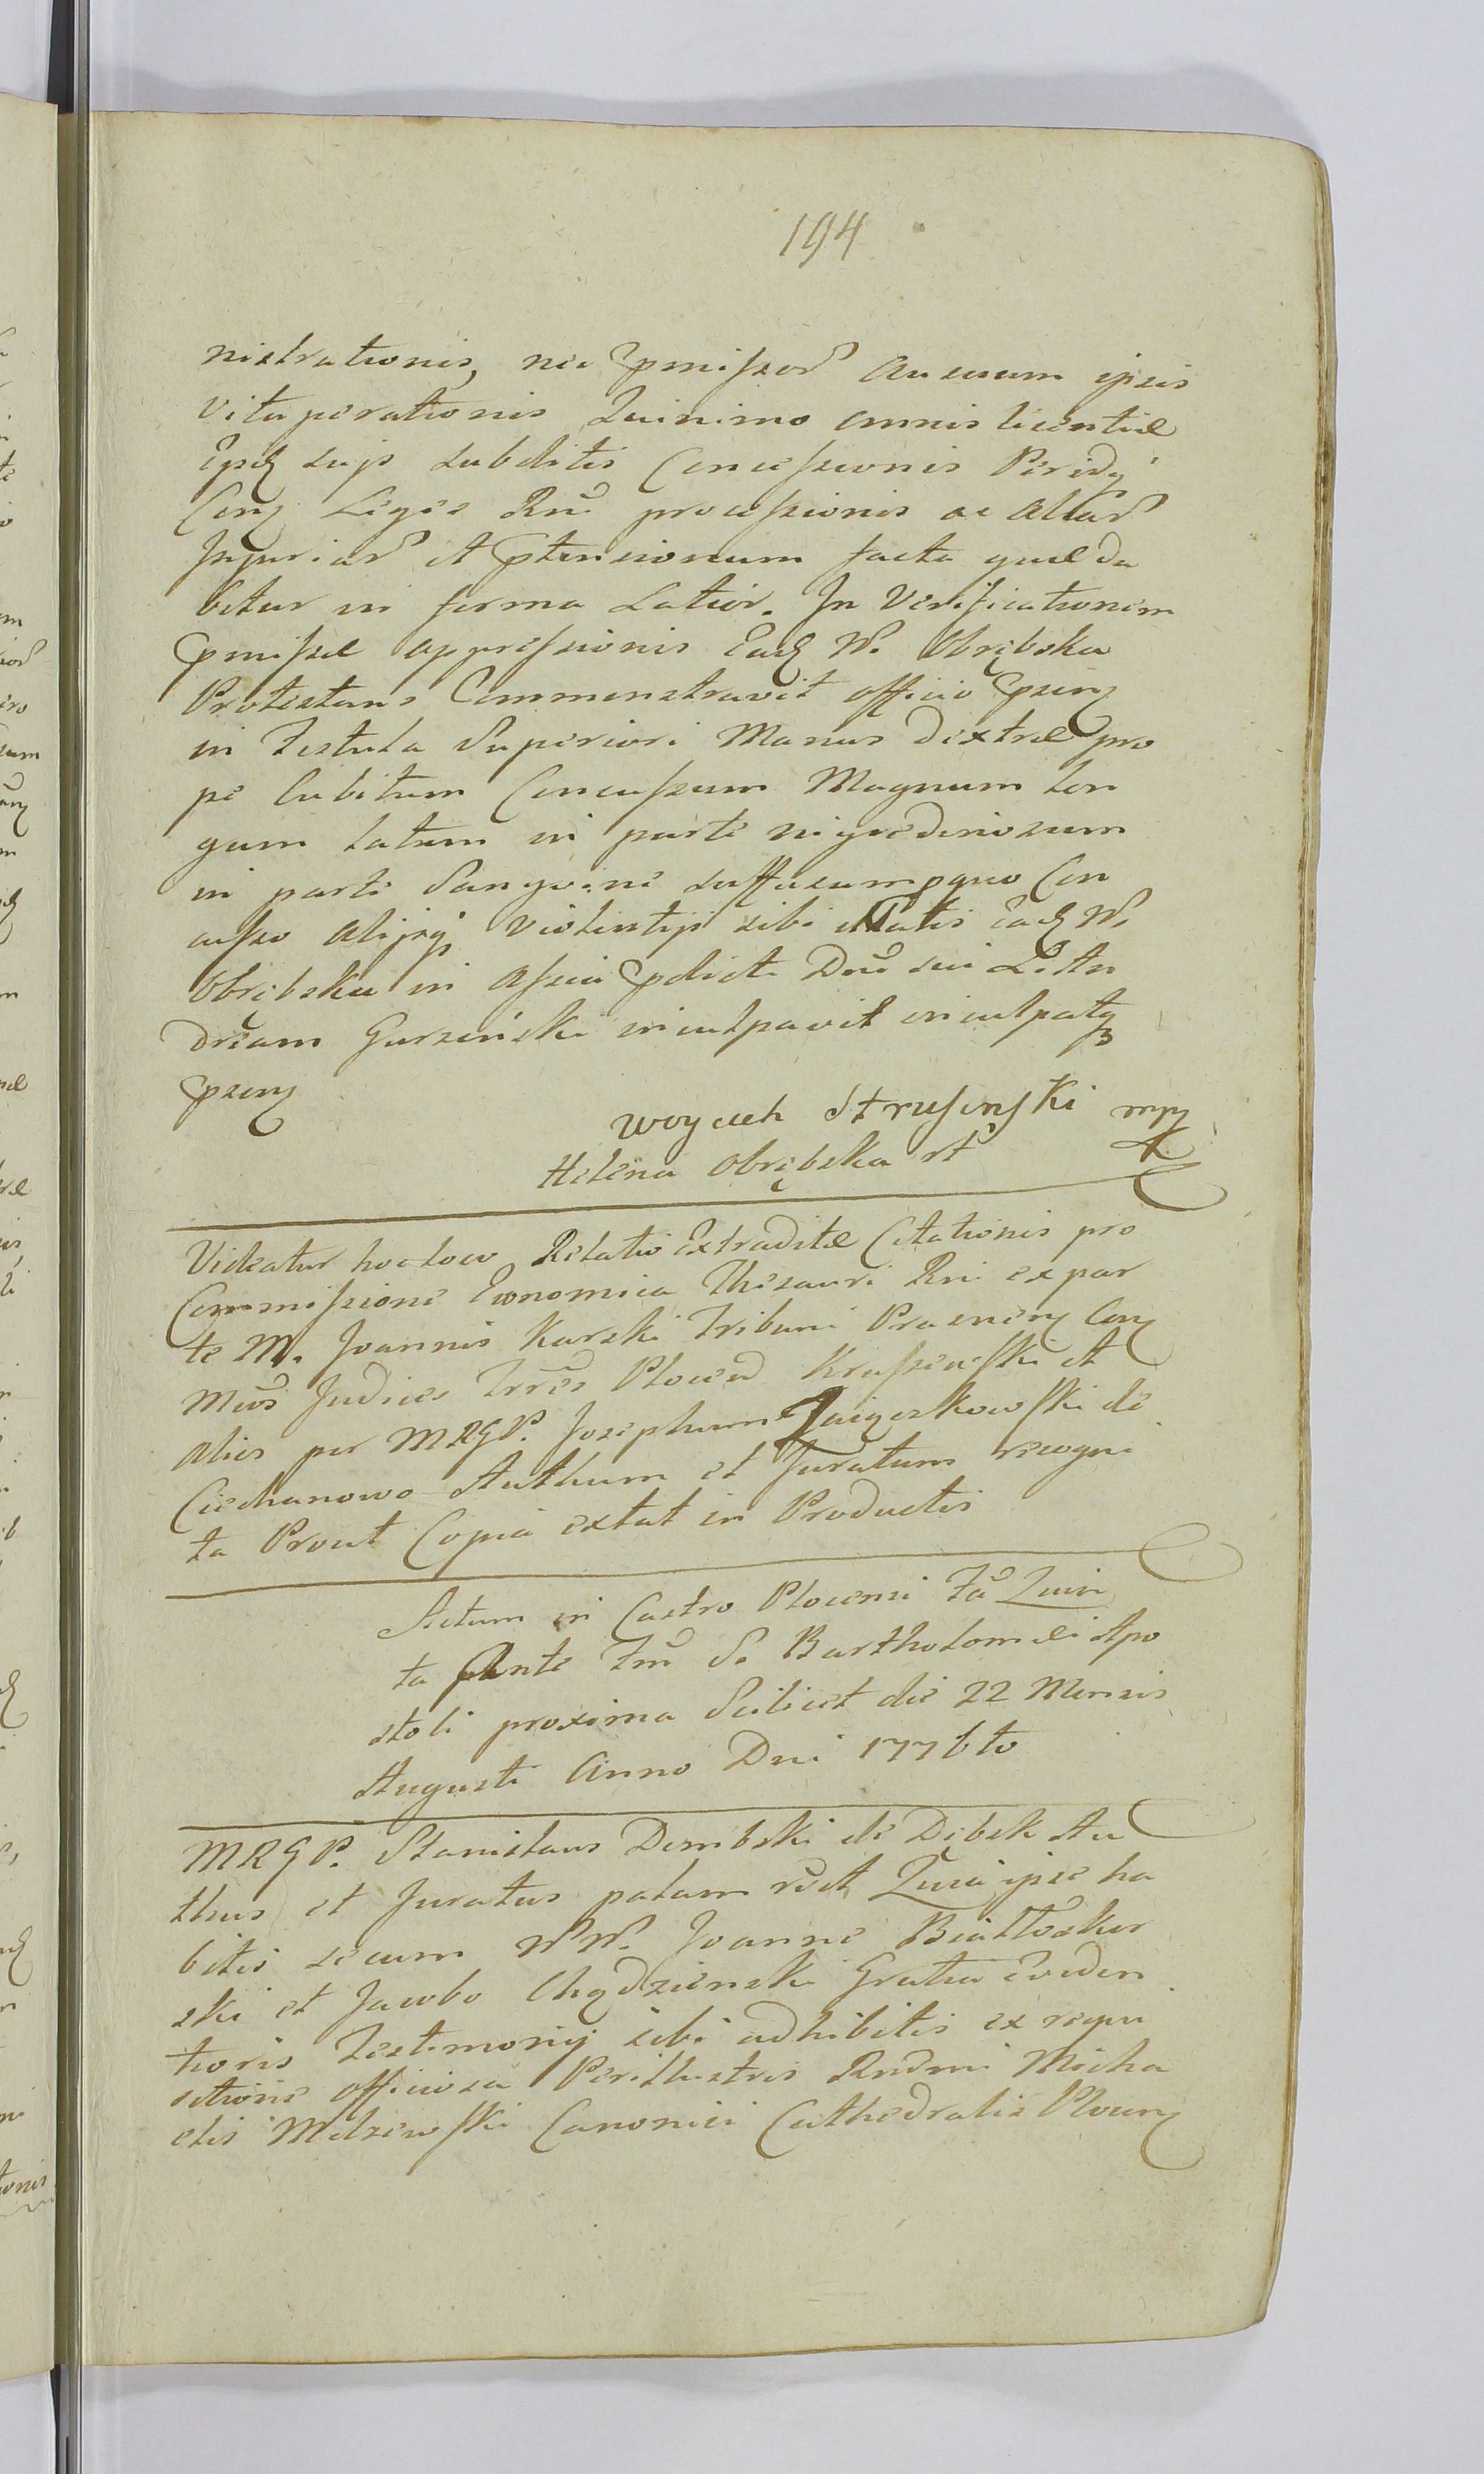 194
nistrationis, nec pmisßor Ausuum ipsis
Vituperationis Quinimo omnis licentiæ
Epsq suis subditis Concesßionis Peridą
Conz Leges Rni procesßionis ac aliar
Injuriar et ptensionum facta quæ da
bitur in forma Latior. In Verificationem
pmisßæ oppresßionis Eadq W. Obrębska
Protestans Commonstravit officio psenz
in Testula Superiori Manus dextræ pro
pe Cubitum Concusßum Magnum lon
gum latum in parte nigredinosum
in parte Sangvine suffusum pquo Con
cusßo alijsq violentijs sibi illatis Eadq W.
Obrębska in Asßia pdicti Dni sui L. An
dream Gurzeński inculpavit inculpatq
psenz
Woyciech Strusinski mpp
Helena Obrębska rt
Videatur hoc loco Relatio Extraditæ Citationis pro
Commisßione Economica Thesauri Rni ex par
te M. Joannis Karski Tribuni Prasnenz Conz
Mcos Judices Trres Plocen Krasßewski et
alios per MRGP. Josephum Zaigeskowski de
Ciechanowo Authum et Juratum recogni
ta Prout Copia extat in Productis
Actum in Castro Plocensi Fa Quin
ta Ante Fm S. Bartholomæi Apo
stoli proxima Scilicet die 22 Mensis
Augusti Anno Dni 1776to
MRGP. Stanislaus Dembski de Dębsk Au
thus et Juratus palam rct Quia ipse ha
bitis secum WW. Joanne Białłosker
ski et Jacobo Chądzienski Gratia Eviden
tioris Testimonij sibi adhibitis ex requi
sitione officiosa Perillustris Rndmi Micha
elis Melzewski Canonici Cathedralis Plocenz